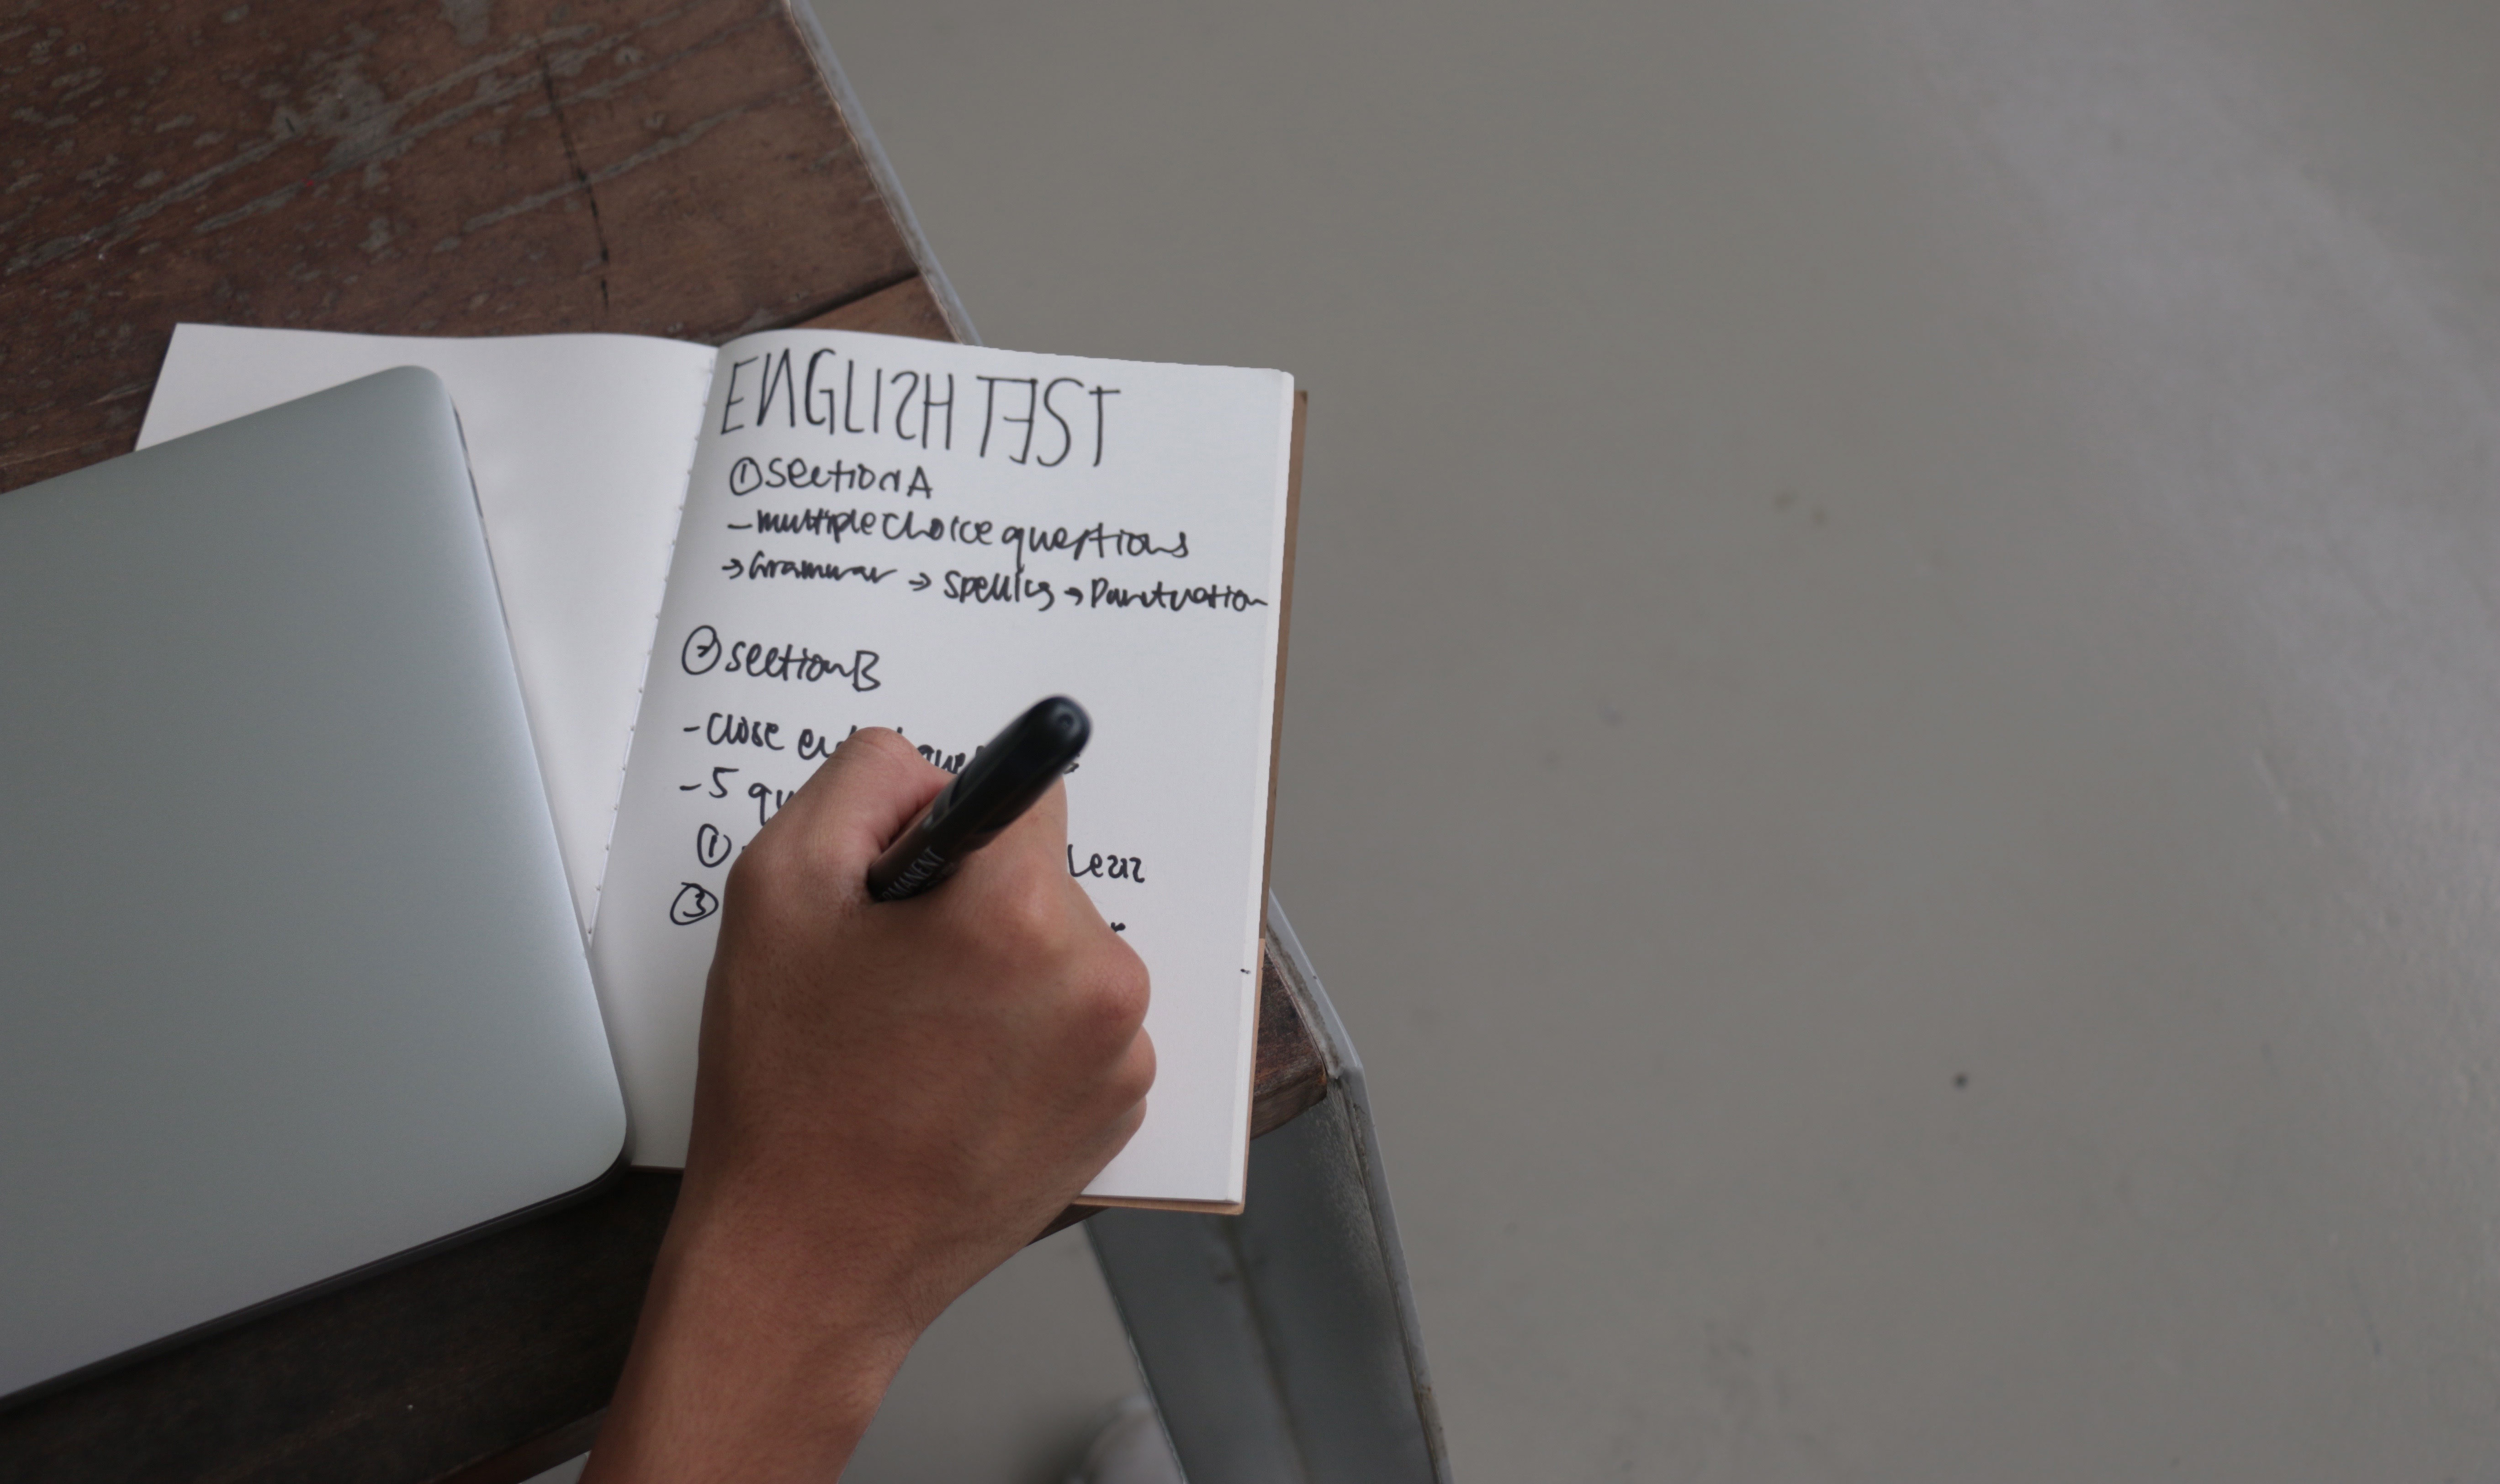 ENGLISH TEST
① Section A
- multiple choice questions
→ Grammar → Spelling → Punctuation
② Section B
- Close
- 5
①
③
MANENT